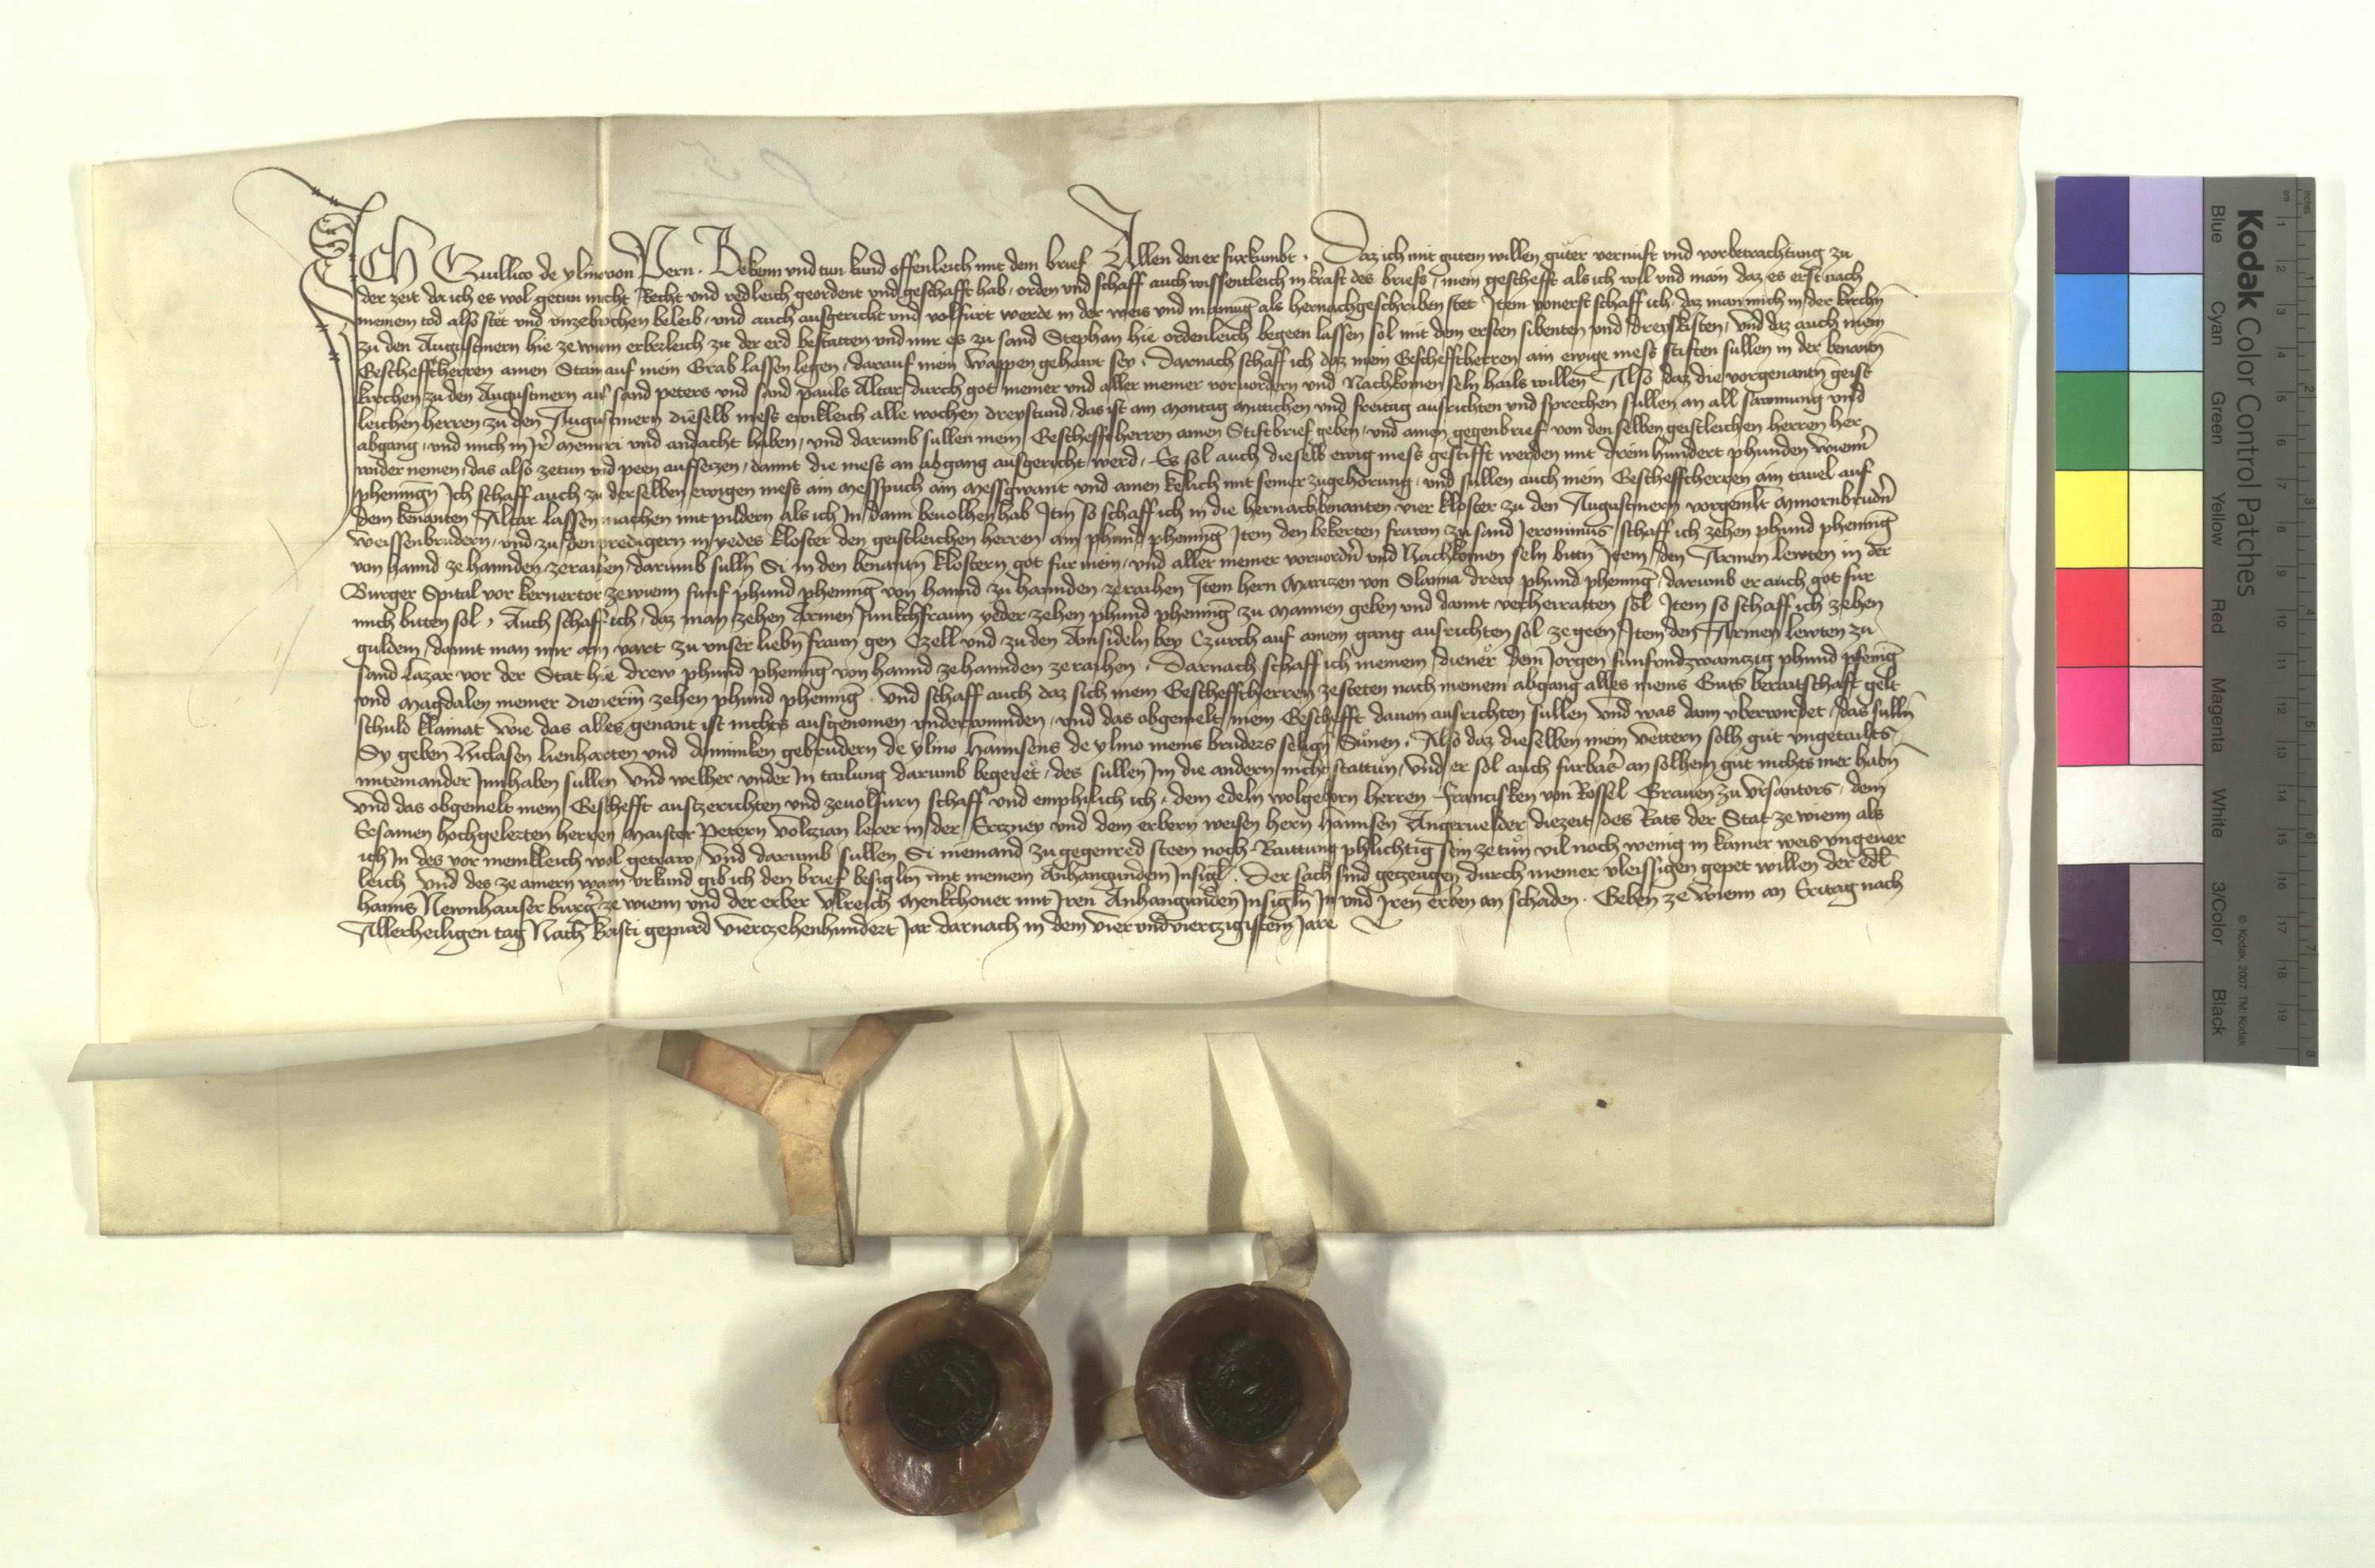 ICH Guillico de ylmo von Pern . Bekenn vnd tun kund offenleich mit dem brief Allen den er furkumbt . Daz ich mit gutem willen guter vernuft vnd vorbetrachtung zu
der zeit da ich es wol getun mocht Recht vnd redleich geordent vnd geschafft hab , orden vnd schaff auch wissentleich in kraft des briefs , mein geschefft als ich wil vnd main daz es erst nach
meinem tod also stet vnd vnzebrochen beleib , vnd auch ausgericht vnd volfurt werde in der weis vnd mainug als hernachgeschriben stet Item vonerst schaff ich , daz man mich in der kirchn
zu den Augustinern hie ze wienn erberleich zu der erd bestatten vnd mir es zu sand Stephan hie ordenleich begeen lassen sol mit dem ersten sibenten vnd dreyskisten , Vnd daz auch mein
Geschefftherren ainen Stain auf mein Grab lassen legen , darauf mein wappen gehawt sey . Darnach schaff ich daz mein Geschefftherren ain ewige mess stiften sullen in der benantn
kirchen zu den Augustinern auf sand peters vnd sand pauls Altar durch got meiner vnd aller meiner voruordern vnd Nachkomen seln hails willen Also daz die vorgenantn geist
leichen herren zu den Augustinern dieselb mess ewikleich alle wochen dreystund , das ist am montag mitichen vnd freitag ausrichten vnd sprechen sullen an all sawmung vnd
abgang , vnd mich in Ir memori vnd andacht haben , vnd darumb sullen mein Geschefftherren ainen Stiftbrief geben , vnd ainen gegenbrief von denselben geistleichen herren her
wider nemen , das also zetun vnd peen aufsetzen , damit die mess an abgang ausgericht werd , Es sol auch dieselb ewig mess gestifft werden mit dreinhundert phunden wienn
phennign Ich schaff auch zu derselben ewigen mess ain messpuch ain messgwant vnd ainen kelich mit seiner zugehorung , vnd sullen auch mein Geschefftherren ain tauel auf
dem benanten Altar lassen machen mit pildern als ich In dann beuolhen hab Itm so schaff ich in die hernachbenanten vier kloster zu den Augustinern vorgemelt minornbrudn
weissenbrudern , vnd zu den predigern in yedes kloster den geistleichen herren ain phund phennig Item den bekerten frawn zu sand Jeronimus schaff ich zehen phund phennig
von hannd ze hannden zeraihen darumb sulln Si in den benantn klostern got fur mein , vnd aller meiner voruordn vnd Nachkomen seln bittn Item den Armen lewten in der
Burger Spital vor kernertor zewienn funf phund phennig von hannd zu hannden zeraihen Item hern Maritzen von Slanna drew phund phennig , darumb er auch got fur
mich bitten sol , Auch schaff ich , daz man zehen Armen Junkchfraun yeder zehen phund phennig zu mannen geben vnd damit verheyratten sol Item so schaff ich zehen
guldein , damit man mir ain vart zu vnser liebn fraun gen Czell vnd zu den Ainsideln bey Czurch auf ainem gang ausrichten sol zegeen , Item den Armen lewten zu
sand Lazar vor der Stat hie drew phund phennig von hannd zehannden zeraihen . Darnach schaff ich meinem diener dem Jorgen funfvndzwaintzig phund pfennig
vnd Magdalen meiner dienerin zehen phund phennig . vnd schaff auch daz sich mein Geschefftherren zesteten nach meinem abgang alles meins Guts beraitschaft gelt
schuld klainat wie das alles genant ist nichts ausgenomen vnderwinnden , vnd das obgemelt mein Geschefft dauon ausrichten sullen Vnd was dann vberwirdet , das sulln
Sy geben Niclasen lienharten vnd dominiken gebrudern de ylmo Hannsens de ylmo meins bruders seligen Sunen . Also daz dieselben mein Vettern solh gut vngetailts
miteinander Innhaben sullen Vnd welher vnder In tailung darumb begeret , des sullen Im die andern nicht stattun , Vnd er sol auch furbas an solhem gut nichts mer habn
vnd das obgemelt mein Geschefft ausczerichten vnd zeuolfurn schaff vnd emphilich ich , dem edeln wolgeborn herren Francisken von Rossel Grauen zu dem
Ersamen hochgelerten herren Maister Petern Volczian lerer in der Ercznney vnd dem erbern weisen hern Hannsen Angeruelder diezeit des Rats der Stat ze wienn als
ich In des vor menikleich wol getraw , Vnd darumb sullen Si niemand zu gegenred steen noch Raittung phlichtig sein zetun vil noch wenig in kainer weis vngeuer
leich Vnd des ze ainem warn vrkund gib ich den brief besigltn mit meinem Anhangundem Insigl . Der sach sind getzeugen durch meiner vleissigen gepet willen der edl
hanns Newnhauser burger ze wienn vnd der erber vlreich menkchouer mit Iren Anhangunden Insigln In vnd Iren erben an schaden . Geben ze wienn an Eritag nach
Allerheiligen tag Nach kristi gepurd Vierczehenhundert Jar darnach in dem Vier vnd Vierczigistem Jare
Kodak Color Control Patches
Blue Cyan Green Yellow Red Magenta White 3/Color Black
© Kodak, 2007 TM: Kodak